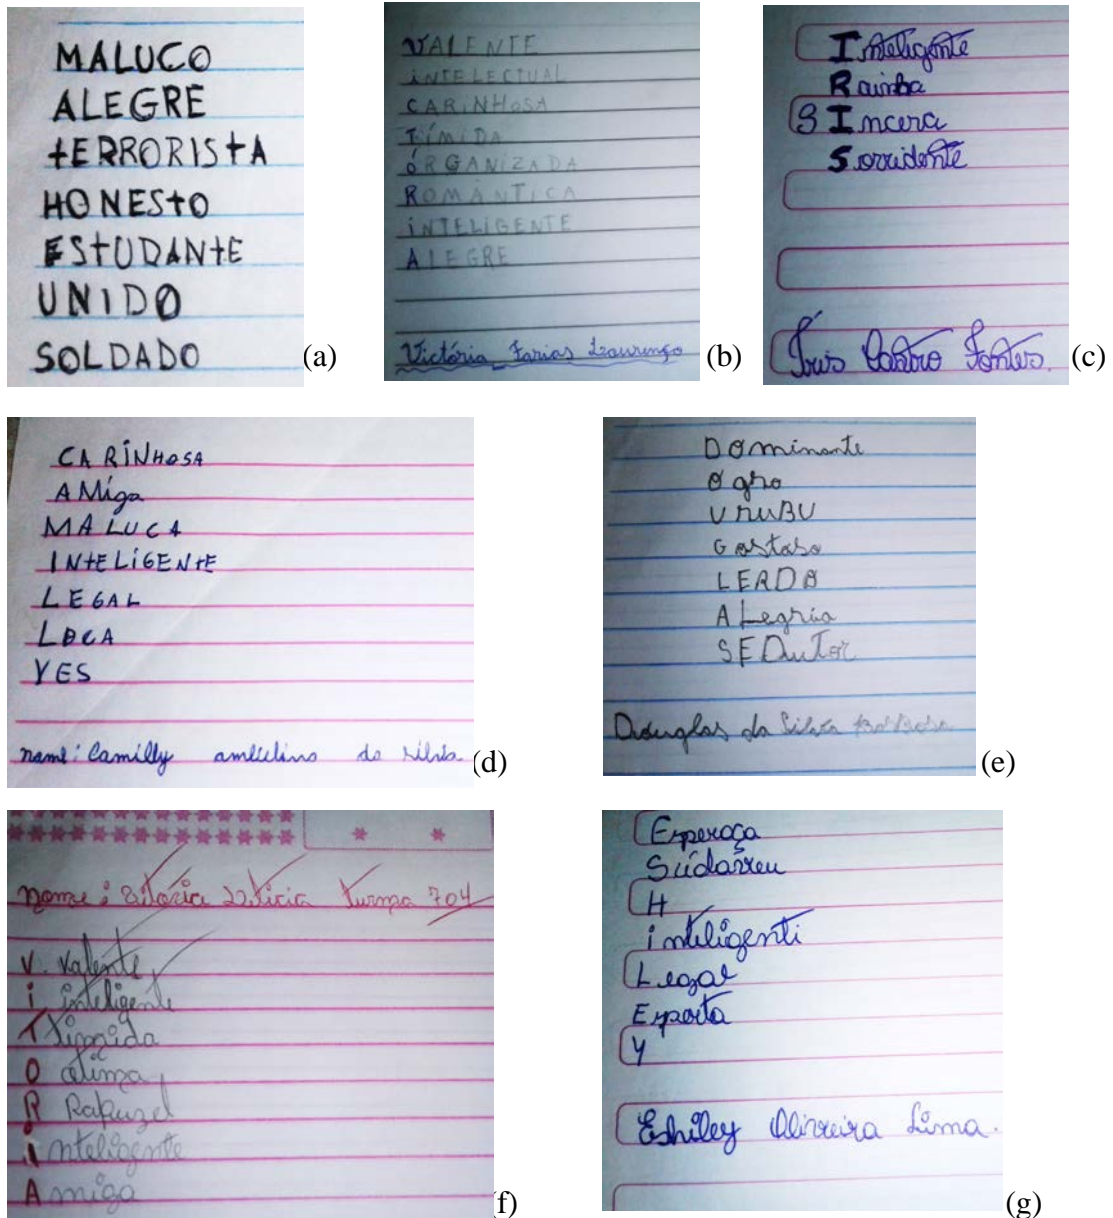 MALUCO
ALEGRE
tERRORIStA
HONESTO
EStUDANtE
UNIDO
SOLDADO
(a)
VALENTE
iNTELECTUAL
CARiNHOSA
TÍMIDA
ÓRGANIZADA
ROMÂNTICA
iNTELiGENTE
ALEGRE
Victória Farias Lourenço
(b)
Inteligente
Rainha
SIncera
Sorridente
Íris Castro Fontes.
(c)
CARiNHOSA
AMiga
MALUCA
INtELiGENtE
LEGAL
LOCA
YES
name: Camilly da Silva
(d)
DOminante
Ogro
UruBU
Gostoso
LERDO
ALegria
SEDuTor
Douglas da Silva Barbosa
(e)
Nome: Vitória Leticia turma 704
V. Valente
i inteligente
T timida
O otima
R Rapuzel
inteligente
Amiga
(f)
Esperaça
H
inteligenti
Legal
Esperta
Y
Eshiley Oliveira Lima.
(g)